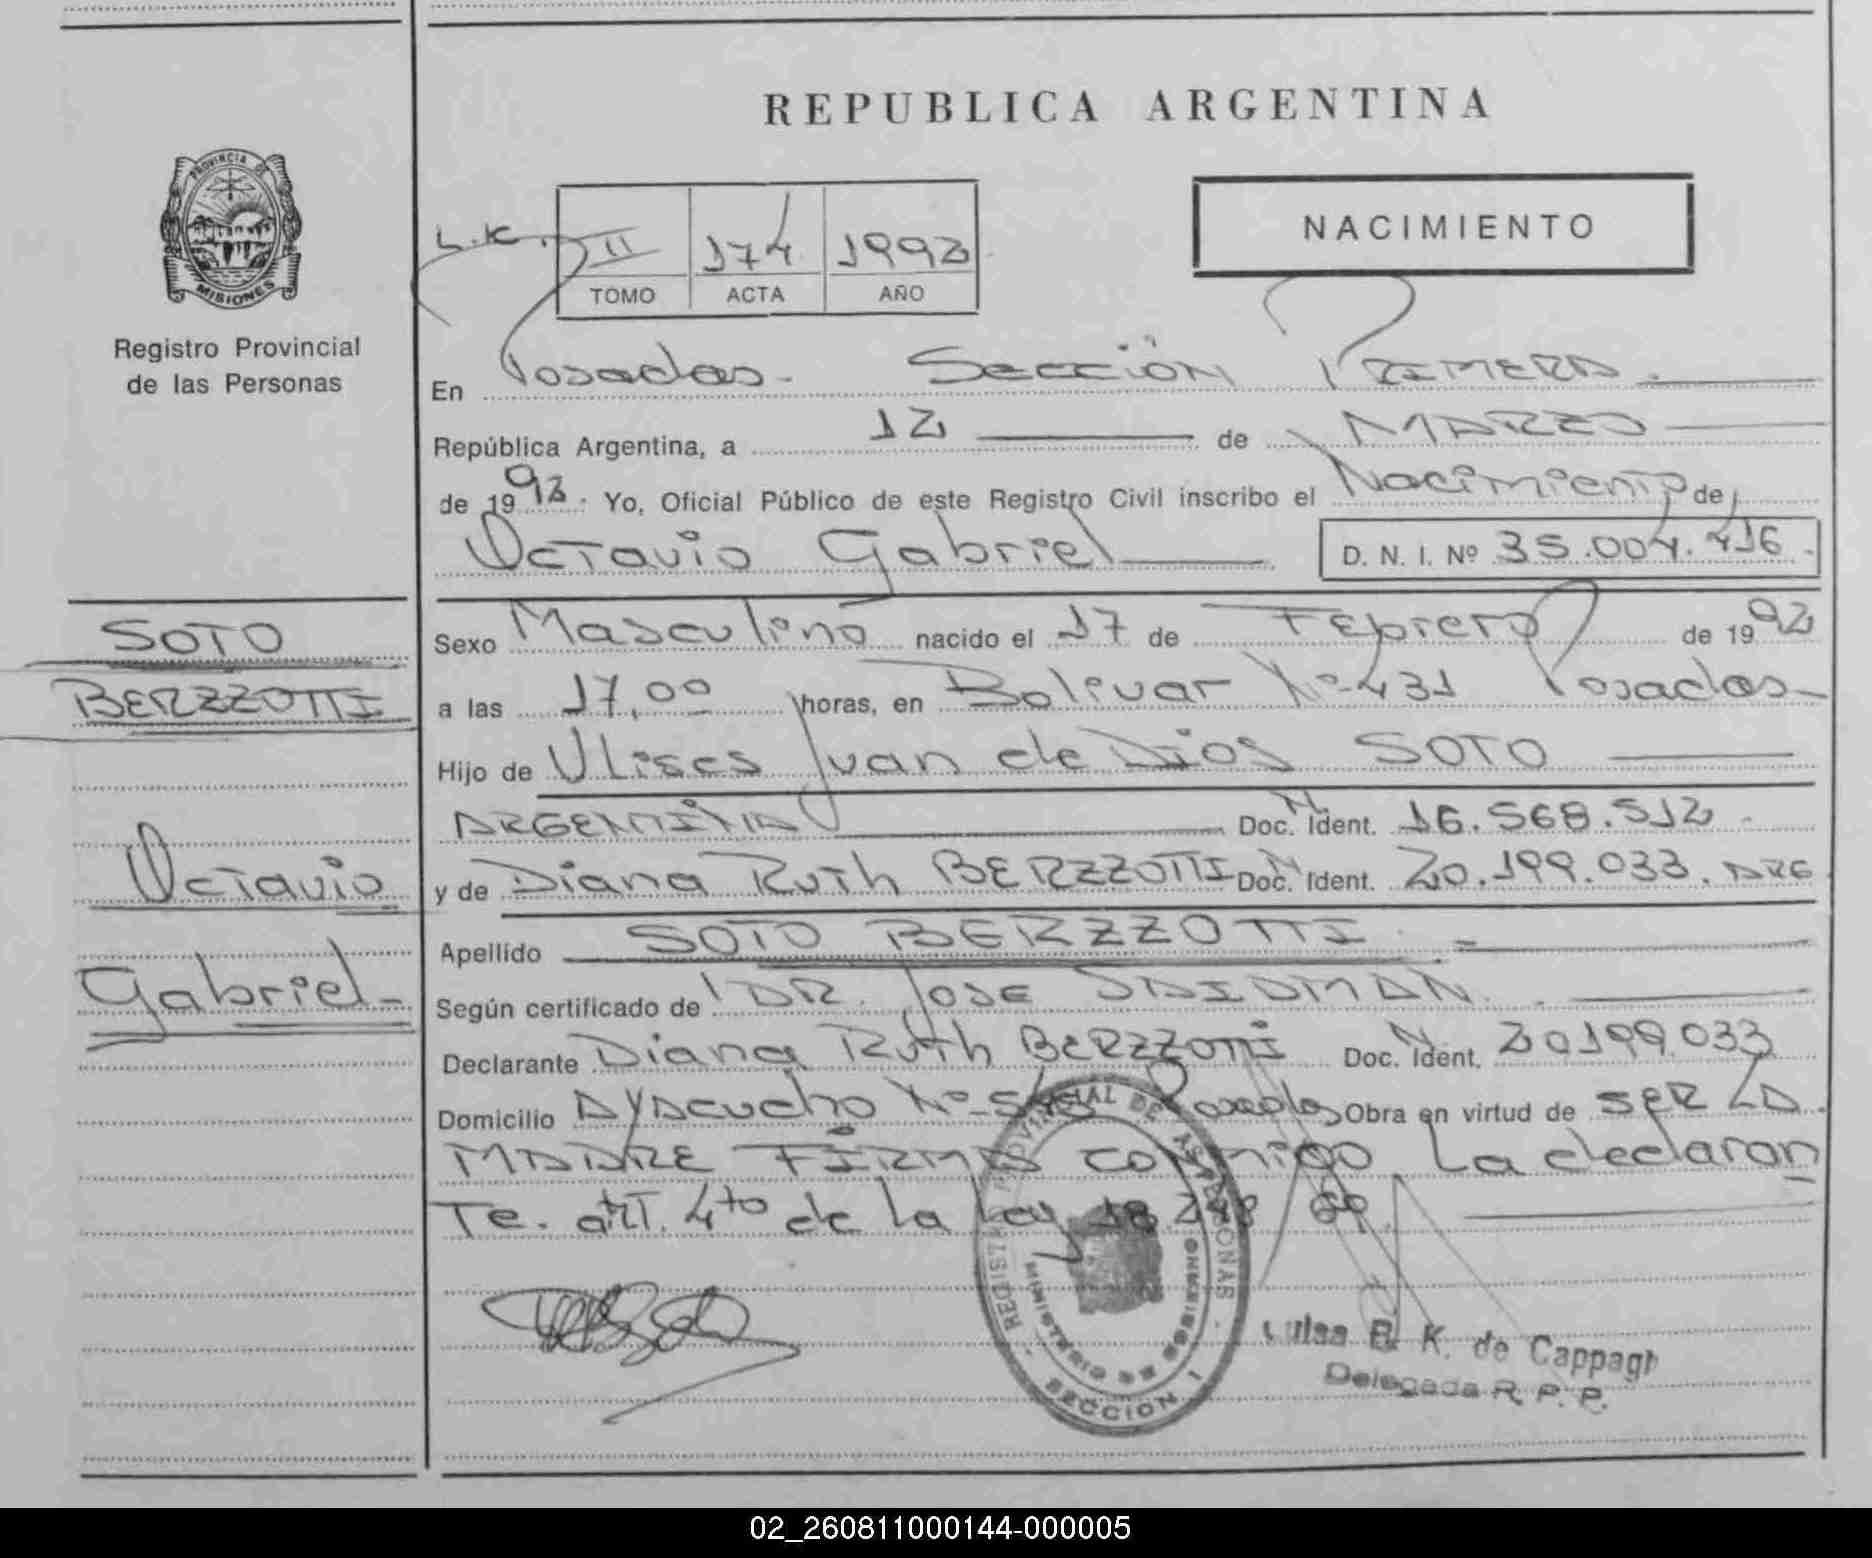 REPUBLICA ARGENTINA
PROVINCIA DE MISIONES
Registro Provincial
de las Personas
L.K.
II 174 1992
TOMO ACTA AÑO
NACIMIENTO
En Posadas - Sección PRIMERA.
República Argentina, a 12 de MARZO
de 1992. Yo, Oficial Público de este Registro Civil inscribo el Nacimiento de
Octavio Gabriel D. N. I. Nº 35.004.416.
SOTO
BERZZOTTI
Octavio
Gabriel-
Sexo Masculino nacido el 17 de Febrero de 1992
a las 17,00 horas, en Bolivar Nº 431 Posadas-
Hijo de Ulises Juan de Dios SOTO
ARGENTINA Doc. N. Ident. 16.568.512.
y de Diana Ruth BERZZOTTI Doc. N. Ident. 20.199.033. ARG
Apellido SOTO BERZZOTTI.
Según certificado de DR. JOSE
Declarante Diana Ruth BERZZOTTI Doc. N. Ident. 20199.033
Domicilio AYACUCHO Nº Posadas Obra en virtud de SER LA
MADRE FIRMA conmigo La declaran
Te. art. 4to de la Ley 18.248/69
REGISTRO PROVINCIAL DE LAS PERSONAS - SECCION 1
MINISTERIO DE GOBIERNO
Luisa B. K. de Cappagl
Delegada R. P. P.
02_260811000144-000005